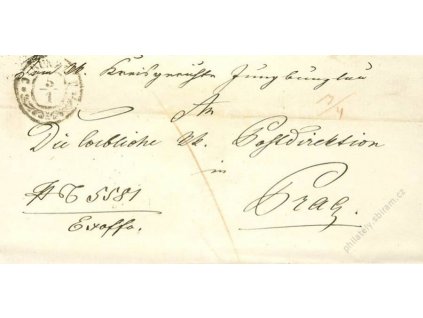 Vom k. k. Kreisgerichte Jungbunzlau
An
Die loebliche k. k. Postdirektion
in
Prag
№ 5581
Exoffo.
5
1
philately.sbiram.cz